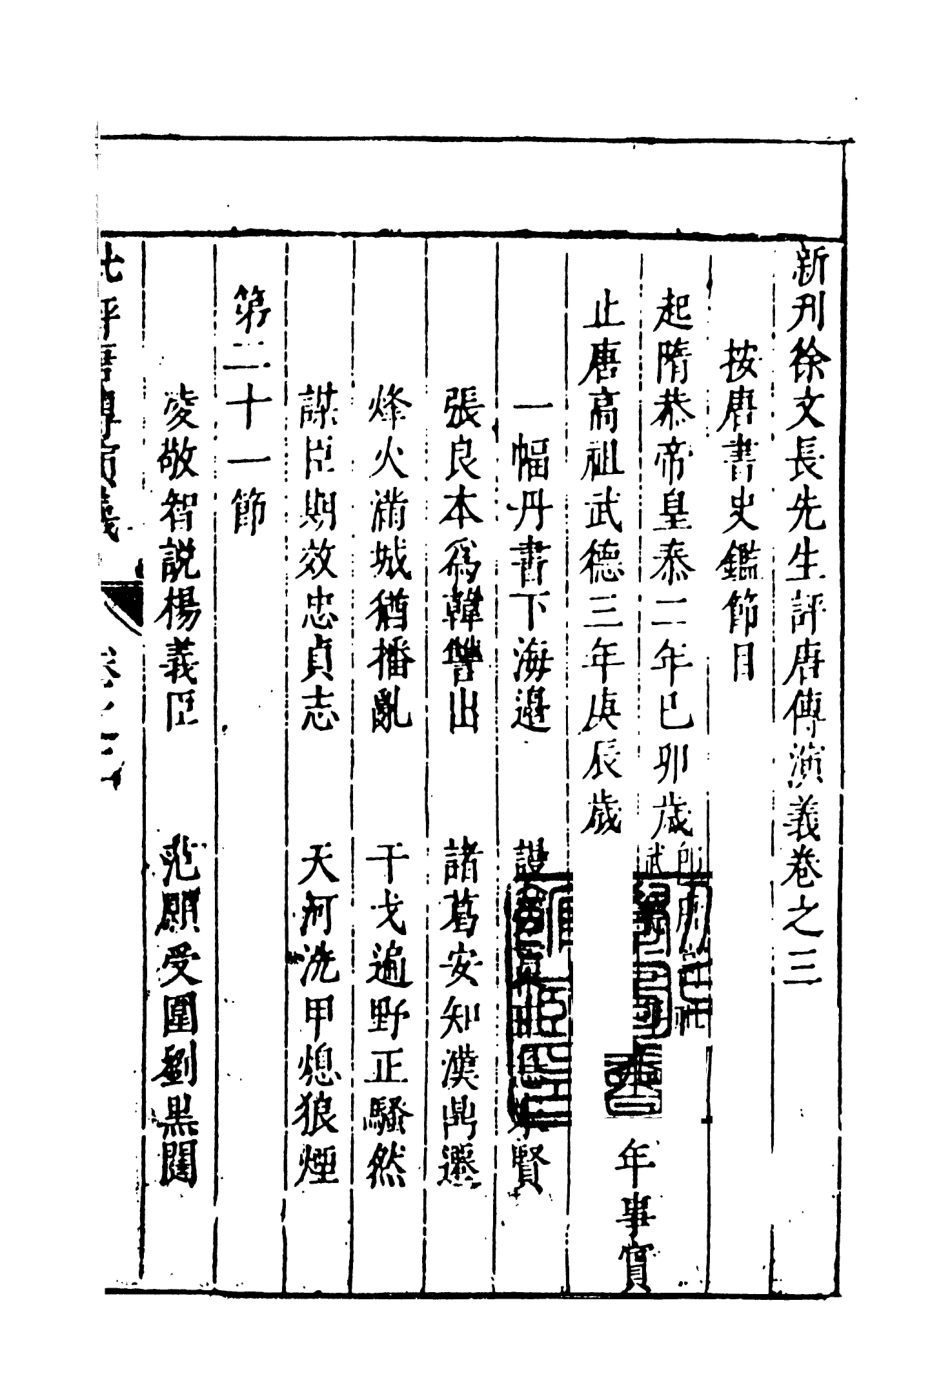 新刊徐文長先生評唐傳演義卷之三
按唐書史鑑節目
起隋恭帝皇泰二年已卯歲
止唐高祖武德三年庚辰歲
年事實
一幅丹書下海邉 賢
張良本爲韓讐出 諸葛安知漢鼎遷
烽火滿城猶播亂 干戈遍野正騷然
謀臣期效忠貞志 天河洗甲熄狼煙
第二十一節
凌敬智說楊義臣 范願受圍劉黑闥
評唐傳演義 卷之三